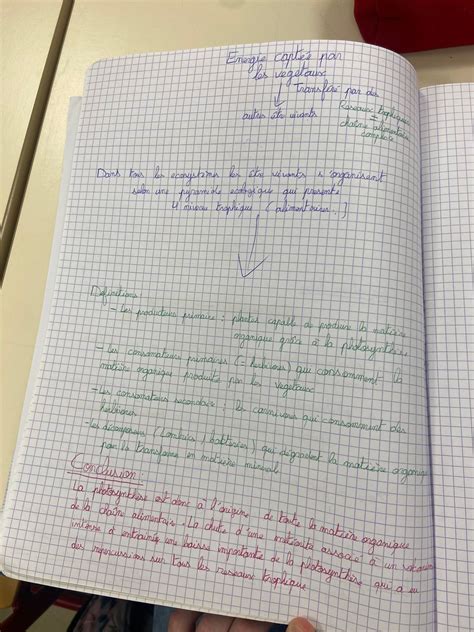 Energie captée par
les vegetaux
↓ transféré par des
Reseaux trophiques
=
autres être vivants
chaîne alimentaire
complexe
Dans tous les ecosystèmes les être vivants s'organisent
selon une pyramide ecologique qui presente
4 niveau trophique (alimentaires.)
Définitions
- Les producteurs primaire : plantes capable de produire la matière
organique grâce à la photosynthèse
- Les consomateurs primaires (= herbivores) qui consomment la
matière organique produite par les vegetaux
- Les consomateurs secondaire : les carnivores qui consomment des
herbivores
- les décomposeurs (lombrics / bactéries) qui dégradent la matière organique
pour la transformer en matière minerale
Conclusion :
La photosynthèse est donc à l'origine de toute la matière organique
de la chaîne alimentaire. La chute d'une météorite associé à un volcanisme
intense à entrainée une baisse importante de la photosynthèse qui a eu
des repercussions sur tous les reseaux trophique